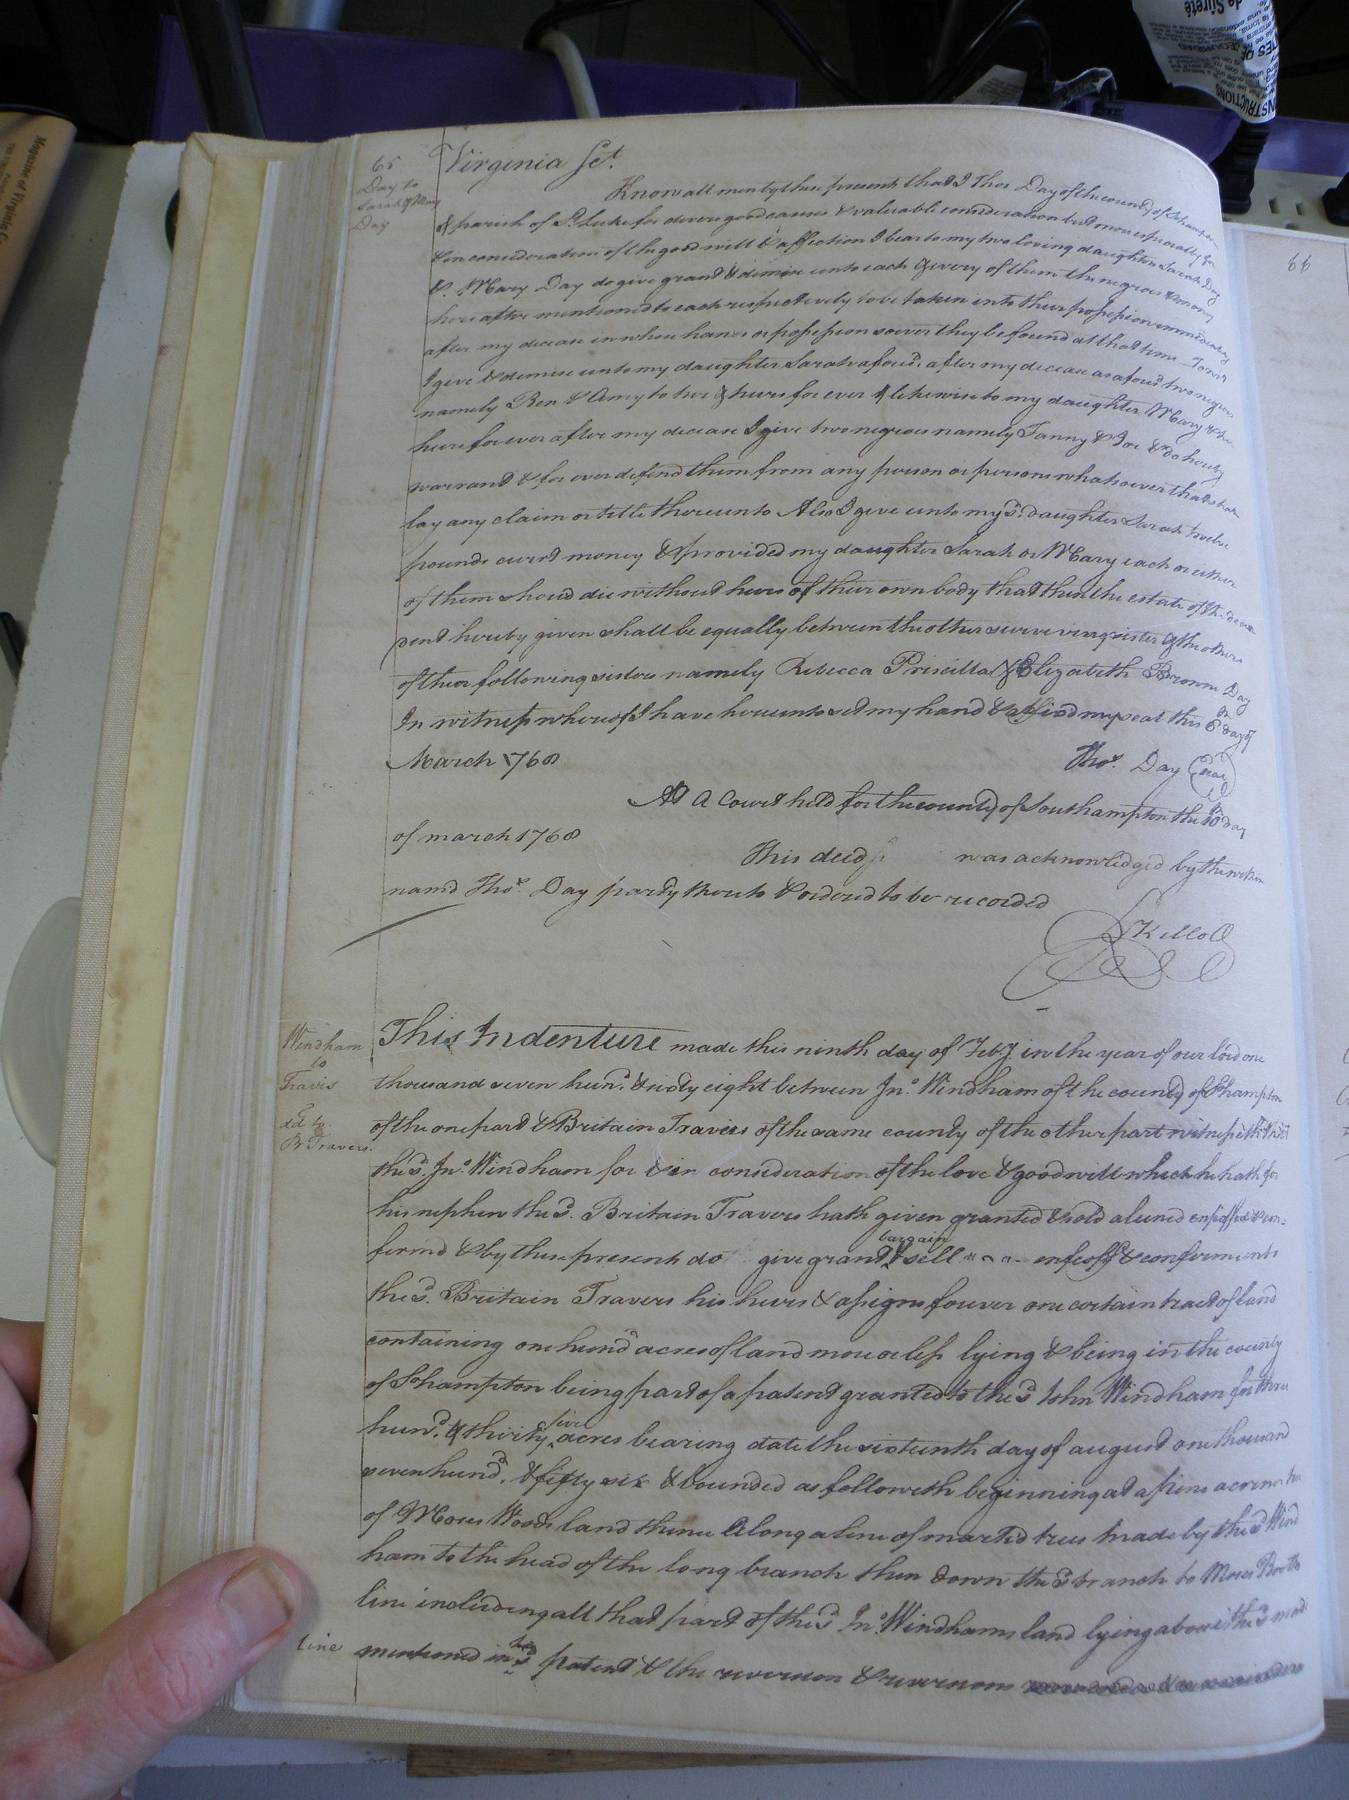 65
Day to
Sarah & Mary
Day
Virginia Sct.
Know all men by these presents that I Thos Day of the county of Sthampton
& parish of St. Luke for divers good causes & valuable consideration but more especially for
& in consideration of the good will & affection I bear to my two loving daughters Sarah Day
& Mary Day do give grant & demise unto each & every of them the negroes & money
here after mentioned to each respectively to be taken into their possession immediately
after my decease in whose hands or possession soever they be found at that time To wit
I give & demise unto my daughter Sarah afousd. after my decease as afousd two negroes
namely Ben & Amey to her & heirs for ever & likewise to my daughter Mary & her
heirs for ever after my decease I give two negroes namely Fanny & Joe & do hereby
warrand & for ever defend them from any person or persons whatsoever that shall
lay any claim or title thereunto Also I give unto my sd. daughter Sarah twelve
pounds currt money & provided my daughter Sarah or Mary each or either
of them shoud die without heirs of their own body that then the estate of the decea
send hereby given shall be equally between the other surviveing sister & the others
of their following sisters namely Rebecca Priscilla & Elizabeth Brown Day
In witness whereof I have hereunto set my hand & affixd my seal this day of
March 1768
Thos. Day (Seal)
At A Court held for the county of Southampton the 10th day
of march 1768
This deed was acknowledged by the within
namd Thos. Day party thereto & orderd to be recorded
Kello
Windham
to
Travis
dd to
B Travers.
This Indenture made this ninth day of Feby in the year of our lord one
thousand seven hund. & sixty eight between Jno. Windham of the county of Sthampton
of the one part & Britain Travers of the same county of the other part witnesseth that
the sd. Jno. Windham for & in consideration of the love & goodwill which he hath for
his nephew the sd. Britain Travers hath given granted & sold aliened enfeoffed & con=
firmd & by these presents do give grant & bargain sell enfeoff & confirm unto
the sd. Britain Travers his heirs & assigns forever one certain tract of land
containing one hund acres of land more or less lying & being in the county
of Sthampton being part of a patent granted to the sd John Windham for three
hund. & thirty five acres bearing date the sixteenth day of august one thousand
seven hund. & fifty six & bounded as followeth beginning at a pine a corner tree
of Moses Woods land thence along a line of marked trees made by the sd Wind
ham to the head of the long branch then down the sd branch to Moses Booths
line including all that part of the sd Jno. Windhams land lying above the sd made
line mentioned in sd patent & the reversion & reversions
66
Magazine of Virginia
de Sûreté
INSTRUCTIONS